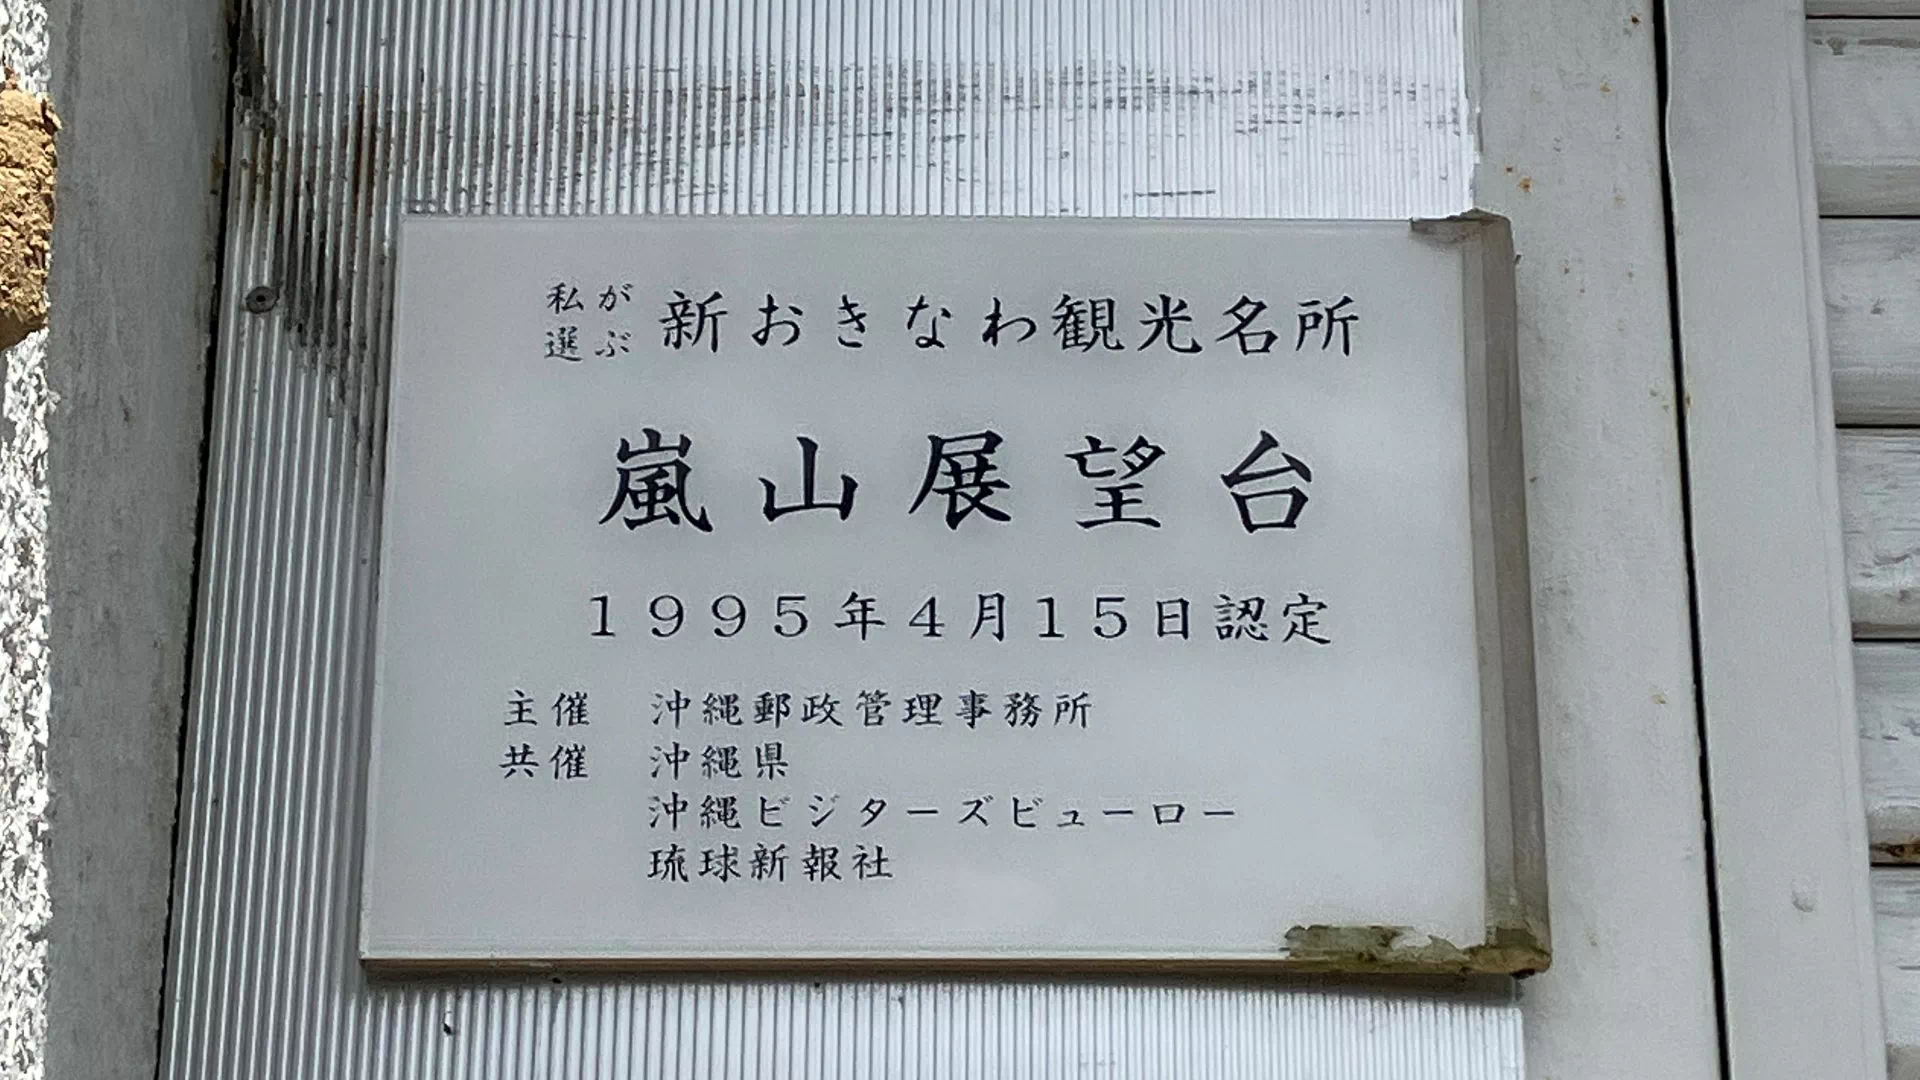 私が選ぶ 新おきなわ観光名所
嵐山展望台
1995年4月15日認定
主催 沖縄郵政管理事務所
共催 沖縄県
沖縄ビジターズビューロー
琉球新報社